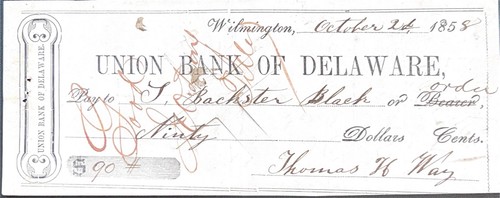 Wilmington, October 2d 1858
UNION BANK OF DELAWARE,
UNION BANK OF DELAWARE
order
Pay to S. Backster Black or Bearer,
Ninty Dollars Cents.
$ 90
Thomas H Way